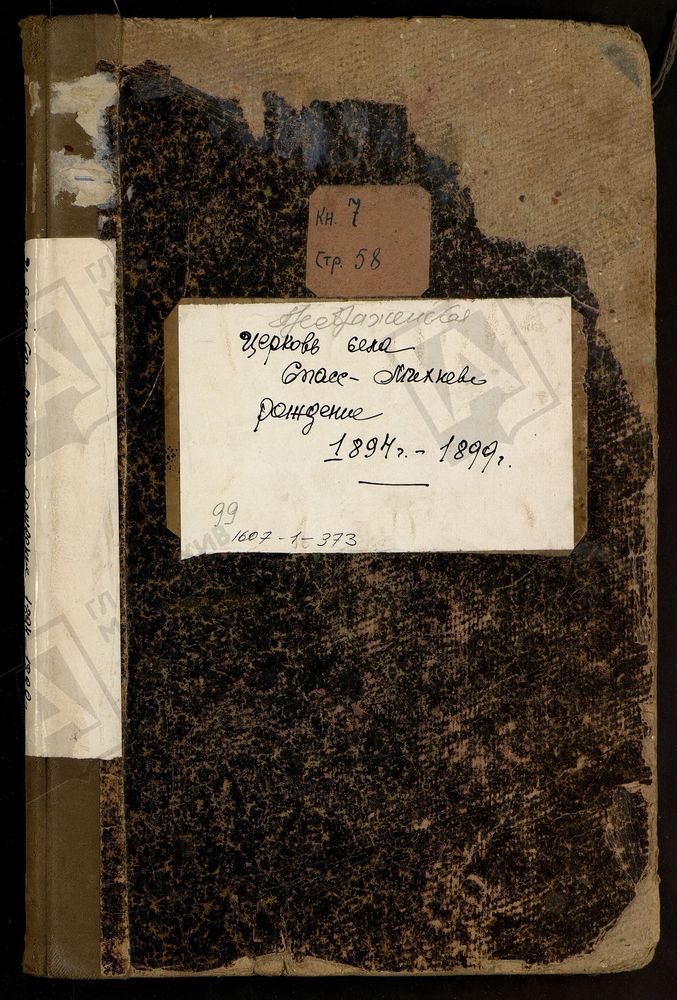 Кн. 7
Стр. 58
Преображенская
Церковь села
Спасс-Михнево
рождение
1894г. - 1899г.
99
1607-1-373